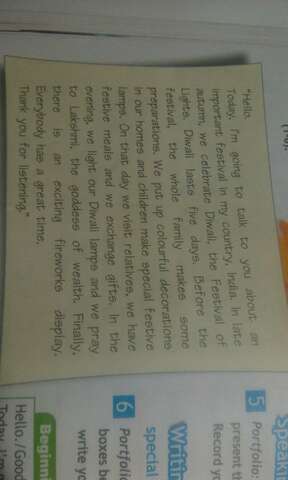 "Hello.
Today, I'm going to talk to you about an
important festival in my country, India. In late
autumn, we celebrate Diwali, the Festival of
Lights. Diwali lasts five days. Before the
festival, the whole family makes some
preparations. We put up colourful decorations
in our homes and children make special festive
lamps. On that day we visit relatives, we have
festive meals and we exchange gifts. In the
evening, we light our Diwali lamps and we pray
to Lakshmi, the goddess of wealth. Finally,
there is an exciting fireworks display.
Everybody has a great time.
Thank you for listening."
Speaki
5 Portfolio:
present th
Record yo
Writin
special
6 Portfoli
boxes be
write yo
Beginni
Hello. / Good
Today, I'm